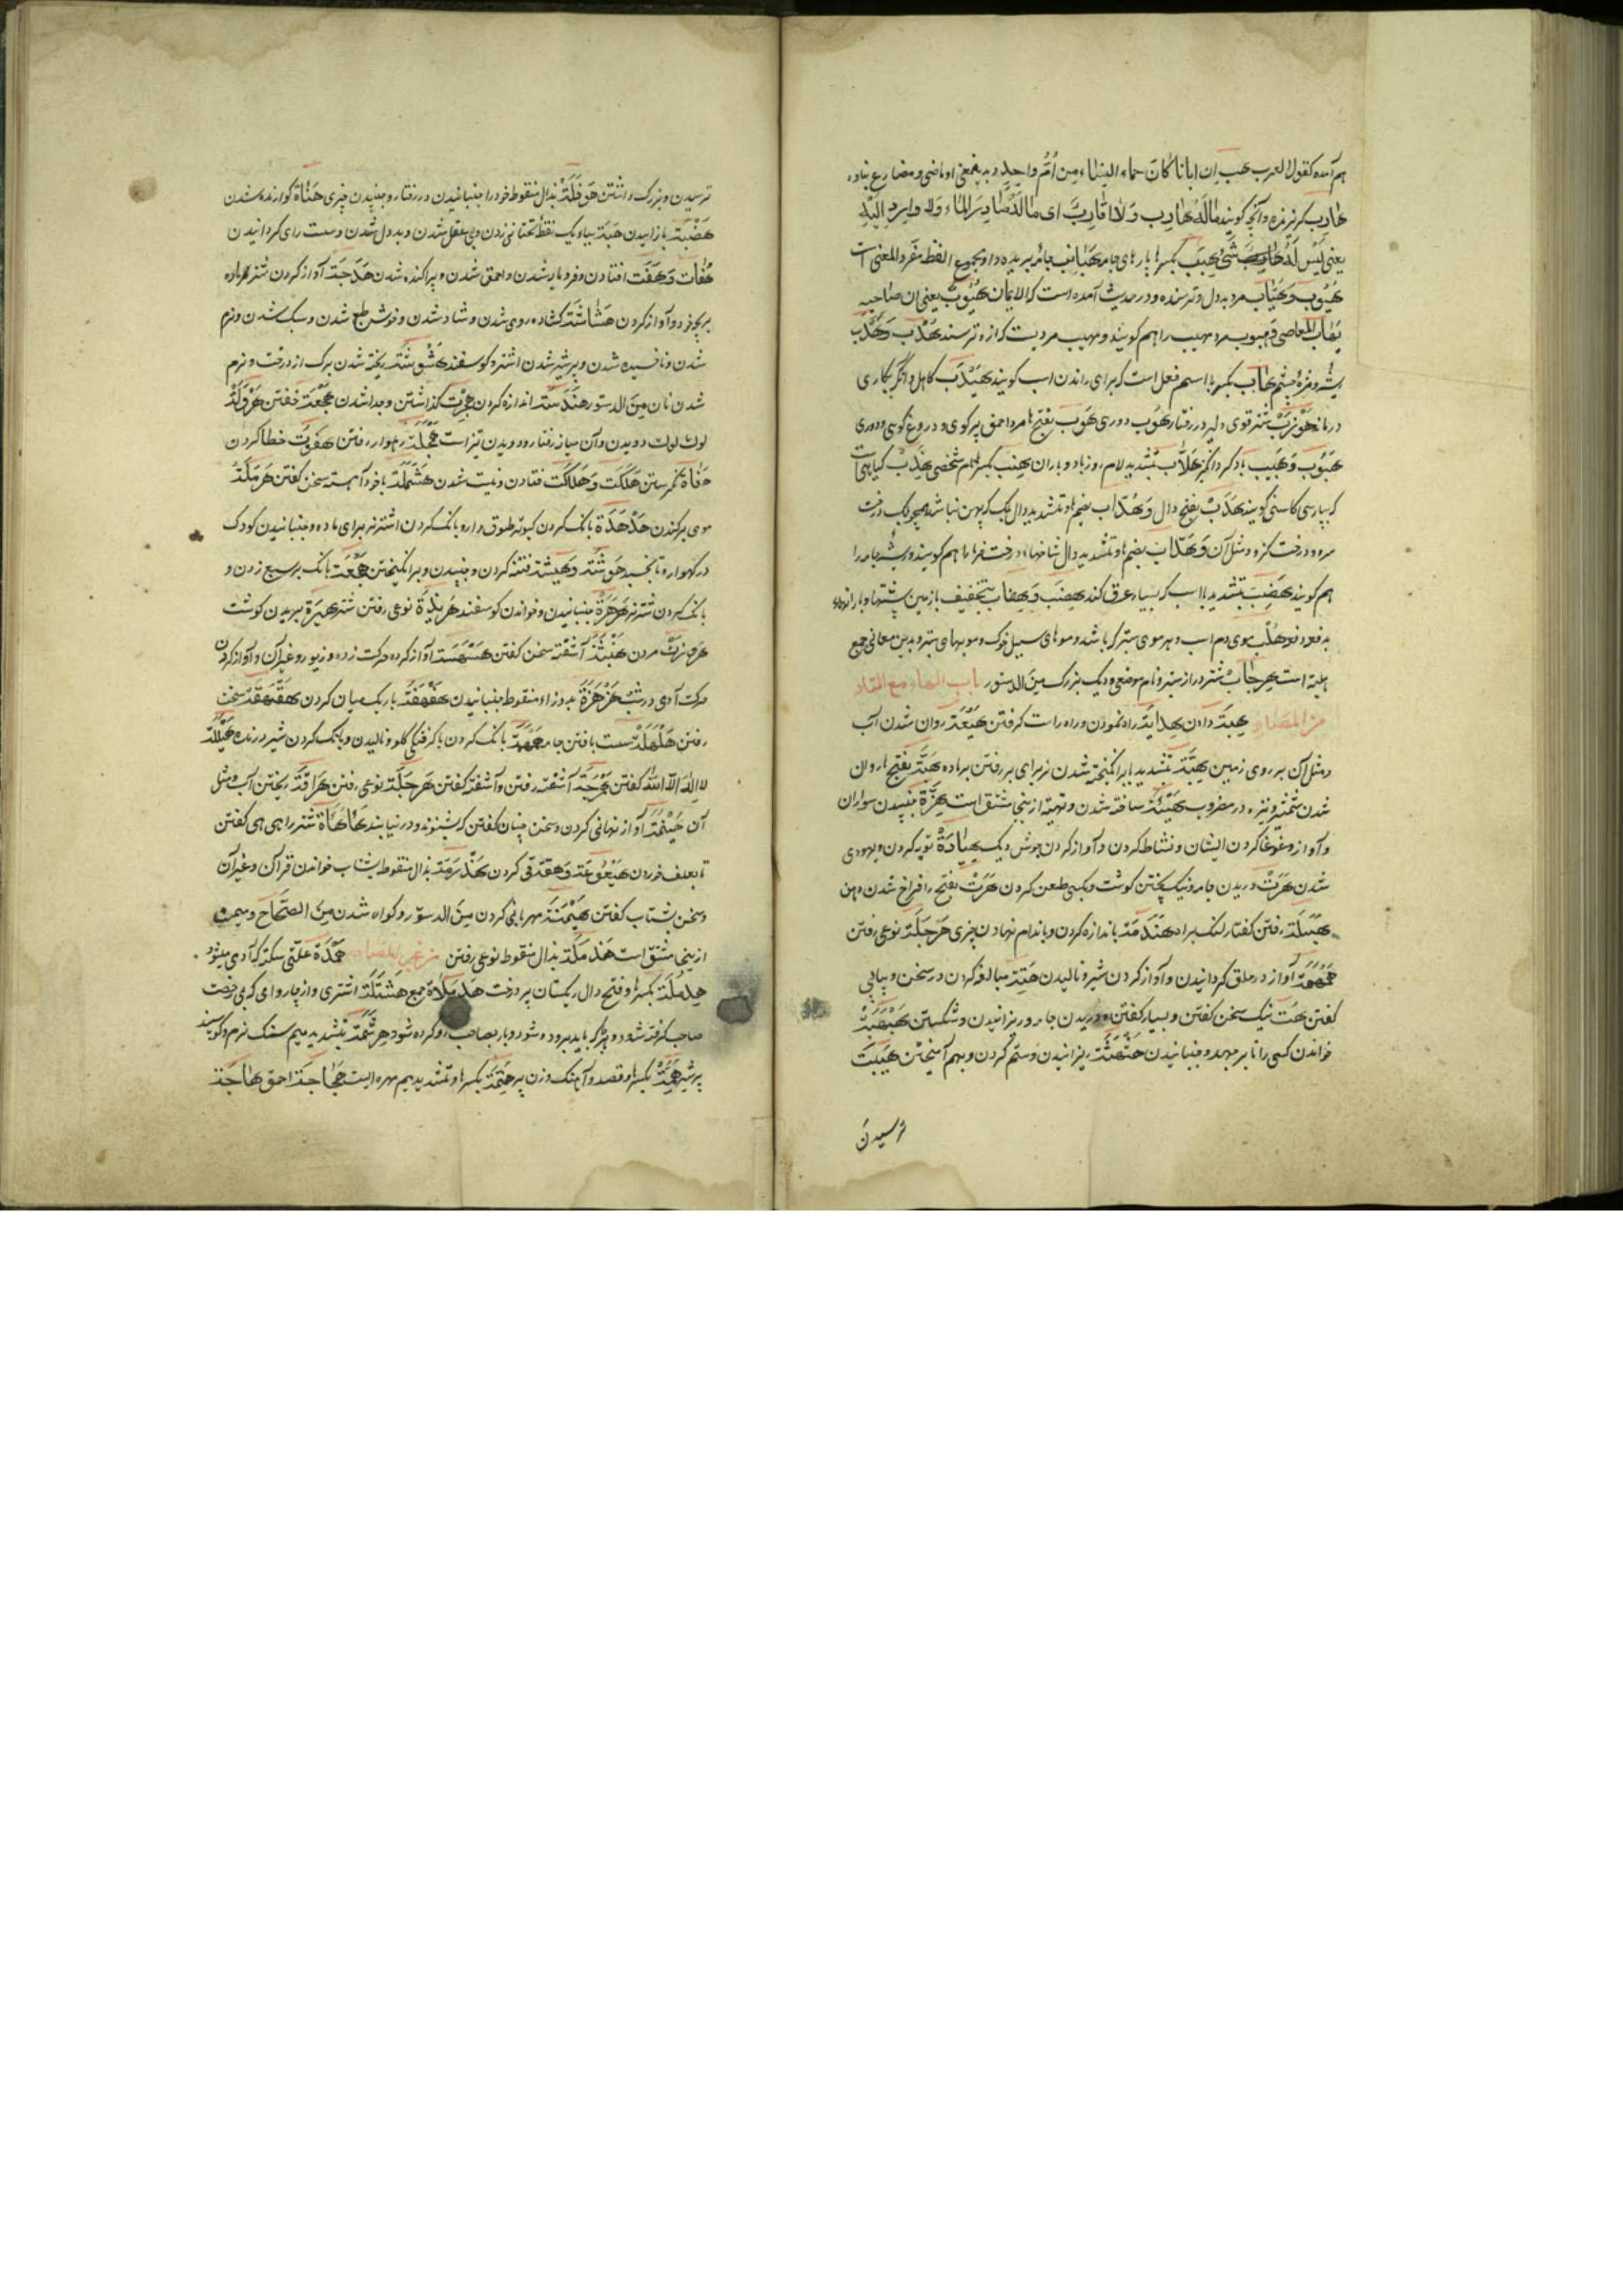 هم آمده کقول العرب هب ان ابانا کان حماء من ام واحد و بدینمعنی او ماضی و مضارع نیاید
هارب گریزنده و آنچه گویند ماله هارب ولا قارب ای ماله صادر الماء ولا وارد الیه
یعنی لیس له شئ هبب بکسر ها پارهای جامه هبائب جامه بریده
هیوب و هیاب مرد بددل و ترسنده و در حدیث آمده است که الایمان هیوب یعنی ان صاحبه
یهاب المعاصی و مهیوب مرد مهیب را هم گویند و مهیب مردیست که ازو ترسند هدب و هدب
ریشه و مژۀ چشم هاب بکسر با اسم فعل است که برای راندن اسب گویند هیدب کاهل و آنکس بکاری
درماند هوزب شتر قوی و دلیر در رفتار هوب دوری هوب بفتح ها مرد احمق پرگوی و دروغ گوی و دوری
هبوب و هبیب باد گردانگیز هلاب بتشدید لام روز باد و باران هنب بکسر ها نام شخصی هندب گیاهیست
که بپارسی کاسنی گویند هدب بفتح دال و هداب بضم ها و تشدید دال برگ که پهن نباشد همچو برگ درخت
سرو و درخت گز و مثل آن و هداب بضم ها و تشدید دال شاخهاء درخت فراز را هم گویند و ریشه جامه را
هم گویند هضب بتشدید با اسب که بسیار عرق کند هضب و هضاب بتخفیف با زمین پشتها و بارانها
بدفعه دفعه هلب موی دم اسب و هر موی ستبر که باشد و موهای سبیل خوک و مویهای ستبر و بدین معانی جمع
هلبه است هرجاب شتر دراز ستبر و نام موضعی و دیگ بزرگ من الدستور باب الهاء مع التاء
من المصادر هبة دادن هدایة راه نمودن و راه راست گرفتن هیعة روان شدن آب
و مثل آن بر روی زمین هبة بتشدید با برانگیخته شدن نر برای بر رفتن بر ماده هبة بفتح ها روان
شدن شمشیر و نیزه در مضروب هیئة ساخته شدن و تهیه ازینجا مشتق است هزة جنبیدن سواران
و آواز و غوغا کردن ایشان و نشاط کردن و آواز کردن جوش دیگ هیادة توبه کردن و یهودی
شدن هرت دریدن جامه و نیک پختن گوشت و بکسی طعن کردن هرت بفتح را فراخ شدن دهن
هنبلة رفتن کفتار لنگ براه هندمة باندازه کردن و باندام نهادن چیزی هرجلة نوعی رفتن
همهمة آواز در حلق گردانیدن و آواز کردن شیر و نالیدن هتة مبالغه کردن در سخن و پیاپی
گفتن هت نیک سخن گفتن و بسیار گفتن و دریدن جامه و ریزانیدن و شکستن هبهبة
خواندن کسی را تا برجهد و جنبانیدن هثهثة ریزانیدن و ستم کردن و بهم آمیختن هیبت
ترسیدن
ترسیدن و بزرگ داشتن هوذلة بذال منقوط خود را جنبانیدن در رفتار و جنبیدن چیزی هناة گوارنده شدن
هضبة باز ایستادن هبتة بیاء یک نقطه تحتانی زدن و بی عقل شدن و بددل شدن و سست رای گردانیدن
هفات و هفت افتادن و فرو مایه شدن و احمق شدن و پراکنده شدن هدجة آواز کردن شتر ماده
بر بچۀ خود و آواز کردن هشاشة گشاده روی شدن و شاد شدن و خوش طبع شدن و سبک شدن و نرم
شدن و پر شیر شدن اشتر و گوسفند هشوشة ریخته شدن برگ از درخت و نرم
شدن نان من الدستور هندسة اندازه کردن هجرت گذاشتن و جدا شدن هجعة خفتن هرولة
لوک لوک دویدن و آن میانه رفتار و دویدن تیز است هملجة رهوار رفتن هفوت خطا کردن
هلکت و هلاکت فتادن و نیست شدن هتملة با خود آهسته سخن گفتن هرملة
موی برکندن هدهدة بانگ کردن کبوتر طوق دار و بانگ کردن اشتر نر برای ماده و جنبانیدن کودک
در گهواره تا بخسبد هوشة و هیشة فتنه کردن و جنبیدن و برانگیختن هجهجة بانگ بر سبع زدن و
بانگ کردن شتر نر هرهرة جنبانیدن و خواندن گوسفند هربذة نوعی رفتن شتر هبرة بریدن گوشت
هروزة مردن هنبثة آشفته سخن گفتن هسهسة آواز کردن حرکت زره و زیور و غیر آن و آواز کردن
حرکت آدمی در شب هزهزة بدو زاء منقوط جنبانیدن هفهفة باریک میان کردن هقهقة سخت
رفتن هلهلة سست بافتن جامه همهمة بانگ کردن با گرفتگی گلو و نالیدن و بانگ کردن شیر درنده هیللة
لا اله الا الله گفتن هرجة آشفته رفتن و آشفته گفتن هرجلة نوعی رفتن هراقة ریختن آب و مثل
آن هینمة آواز نهانی کردن و سخن چنان گفتن که بشنوند و در نیابند هاهاة شتر را هی هی گفتن
تا بعلف خوردن هیعوعة و هقة قی کردن هذرمة بذال منقوط بشتاب خواندن قرآن و غیر آن
و سخن بشتاب گفتن هیمنة مهربانی کردن من الدستور و گواه شدن من الصحاح و مهیمن
ازینجا مشتق است هذملة بذال منقوط نوعی رفتن من غیر المصادر همدة علتی سکته که آدمی میشود
هدملة بکسر ها و فتح دال ریگستان پر درخت هدملاة جمع هشتلة اشتری و از چاروائی که بی رخصت
صاحب گرفته شود و بهر جا که باید برده شود و باز بصاحب رد کرده شود هرشمة بتشدید میم سنگ نرم و گوسپند
پر شیر همة بکسر ها و قصد و آهنگ و زن پیر هنمة بکسر ها و تشدید میم مهره ایست هجاجة احمق هاجة